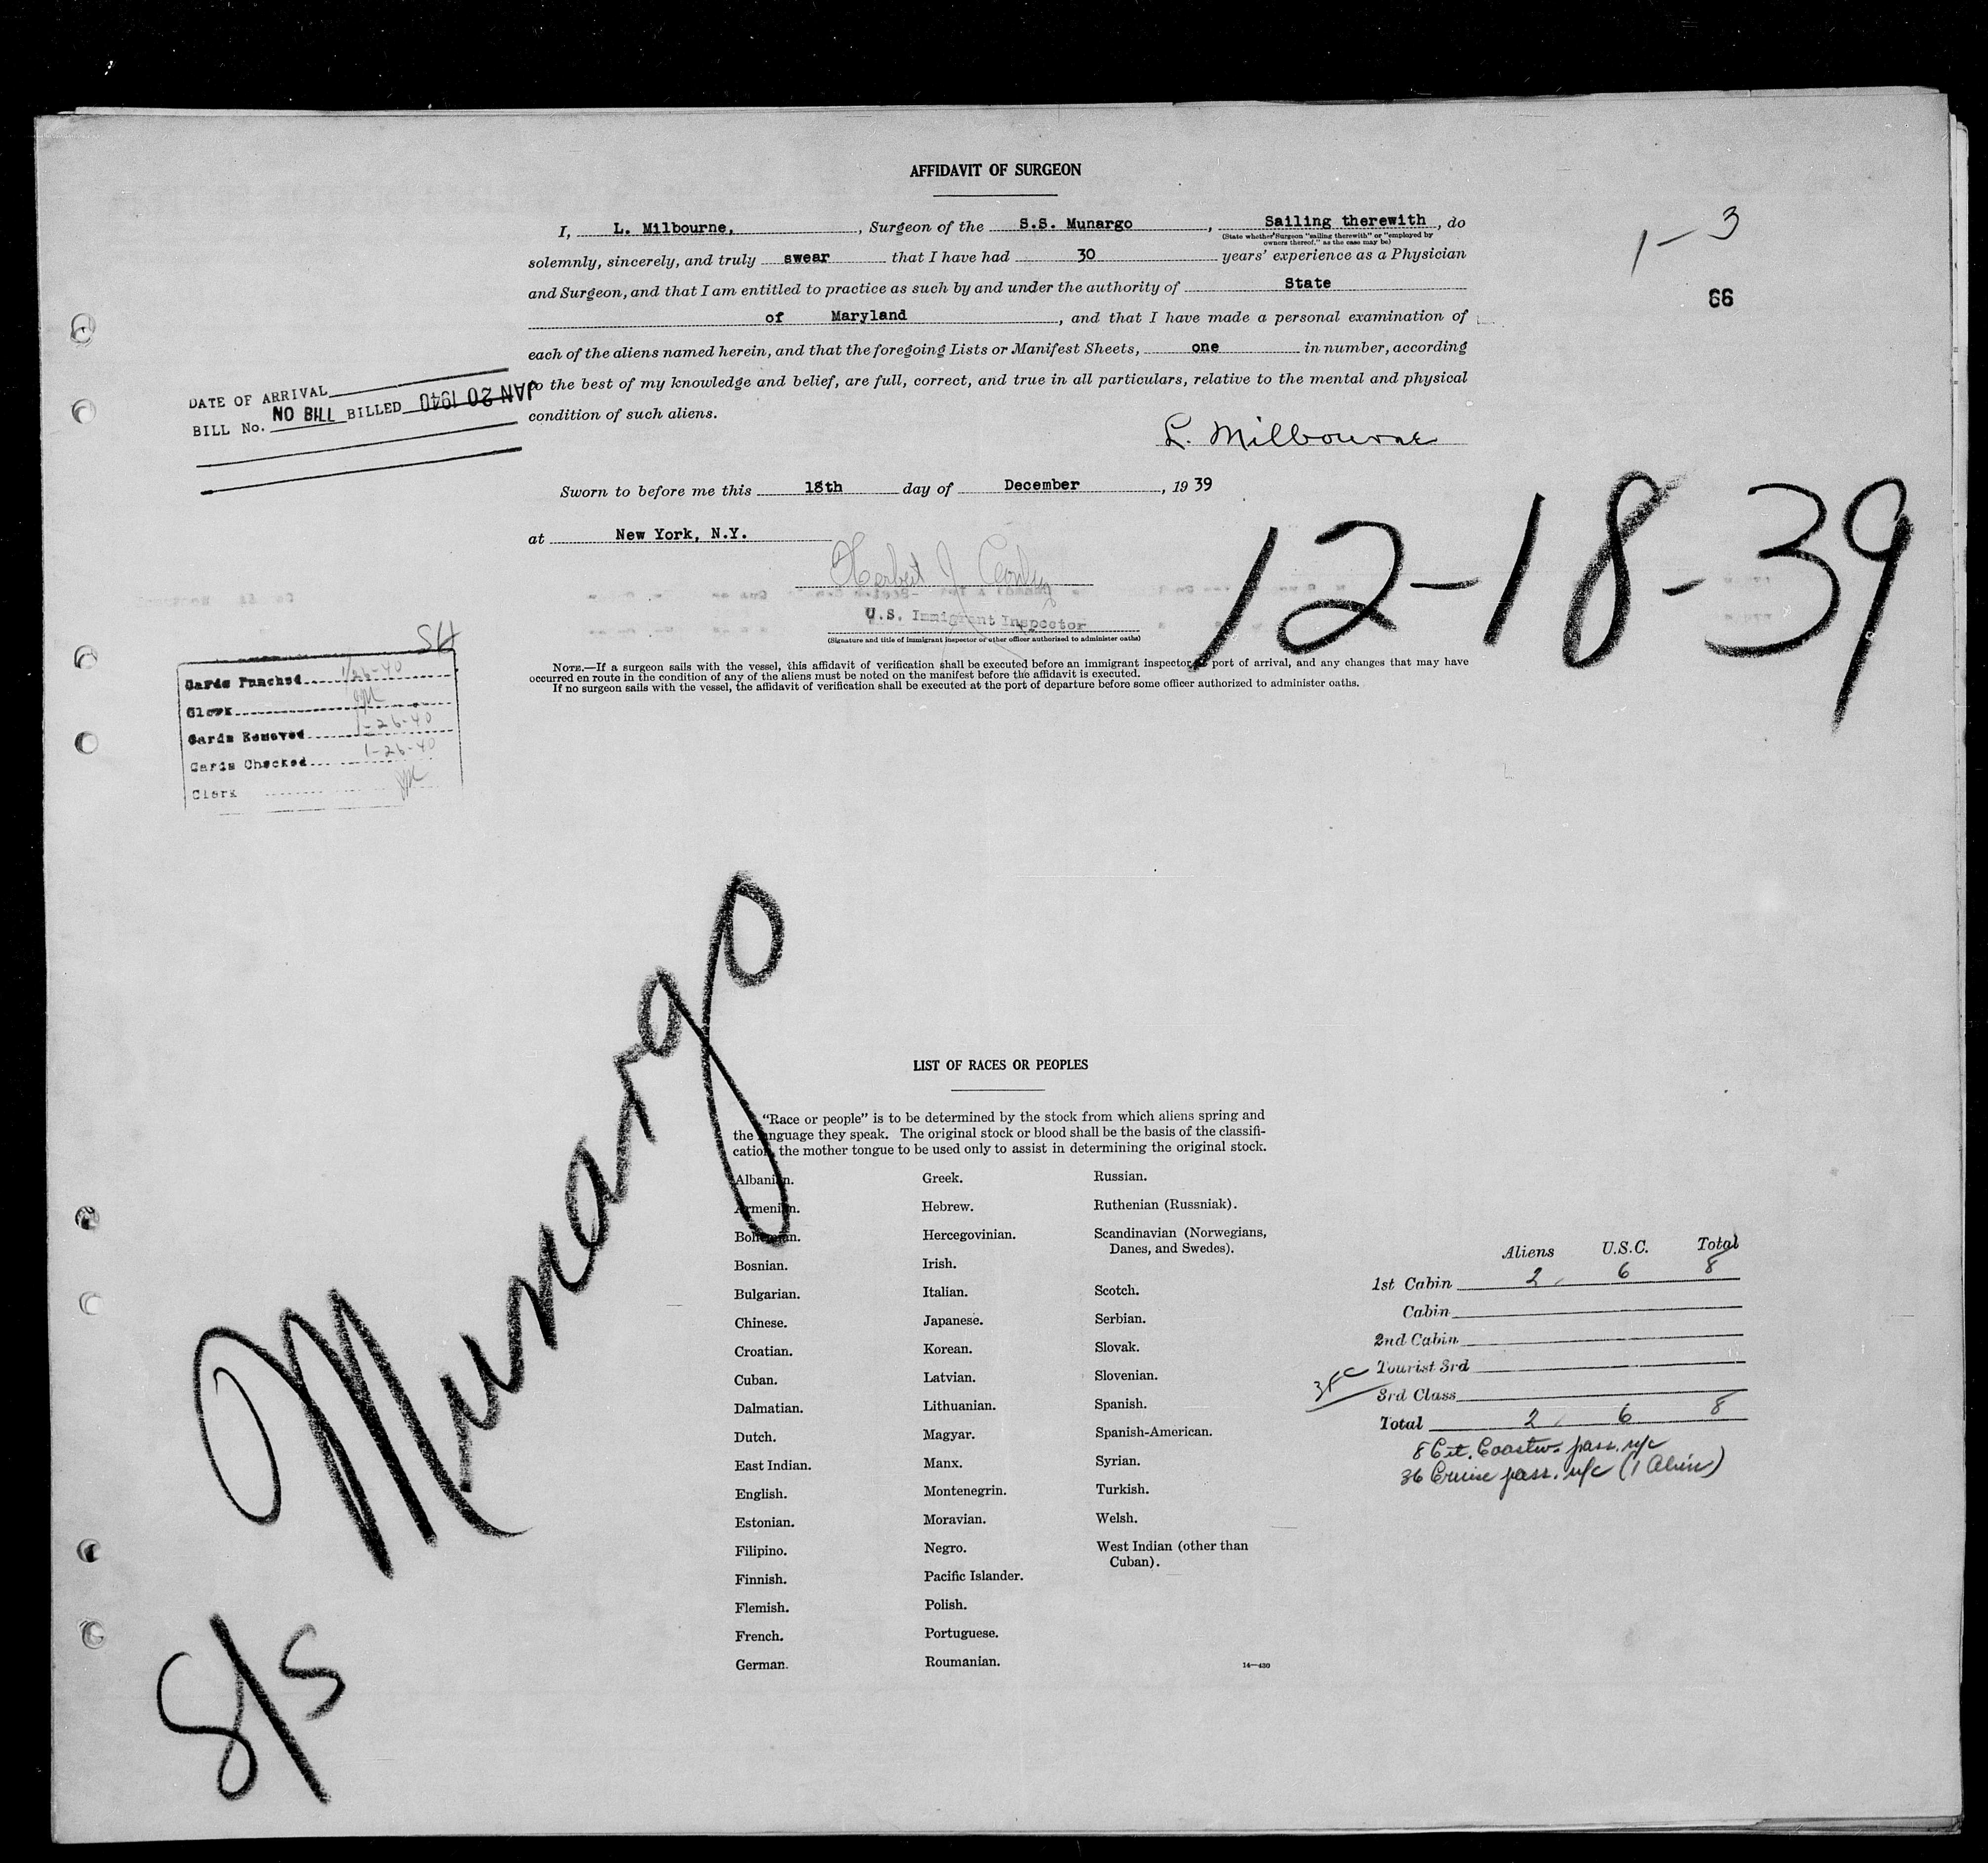 AFFIDAVIT OF SURGEON
I, L. Milbourne, , Surgeon of the S.S. Munargo , Sailing therewith , do
(State whether Surgeon "sailing therewith" or "employed by
owners thereof," as the case may be)
solemnly, sincerely, and truly swear that I have had 30 years' experience as a Physician
and Surgeon, and that I am entitled to practice as such by and under the authority of State
of Maryland , and that I have made a personal examination of
each of the aliens named herein, and that the foregoing Lists or Manifest Sheets, one in number, according
to the best of my knowledge and belief, are full, correct, and true in all particulars, relative to the mental and physical
condition of such aliens.
L. Milbourne
Sworn to before me this 18th day of December , 1939
at New York, N.Y.
Herbert J.
U.S. Immigrant Inspector
(Signature and title of immigrant inspector or other officer authorized to administer oaths)
NOTE.—If a surgeon sails with the vessel, this affidavit of verification shall be executed before an immigrant inspector at port of arrival, and any changes that may have
occurred en route in the condition of any of the aliens must be noted on the manifest before the affidavit is executed.
If no surgeon sails with the vessel, the affidavit of verification shall be executed at the port of departure before some officer authorized to administer oaths.
1-3
66
12-18-39
DATE OF ARRIVAL
BILL No. NO BILL BILLED JAN 20 1940
SH
Cards Punched 1/26-40
Clerk
Cards Removed 1-26-40
Cards Checked 1-26-40
Clerk
S/S Munargo
LIST OF RACES OR PEOPLES
"Race or people" is to be determined by the stock from which aliens spring and
the language they speak. The original stock or blood shall be the basis of the classifi-
cation, the mother tongue to be used only to assist in determining the original stock.
Albanian.
Armenian.
Bohemian.
Bosnian.
Bulgarian.
Chinese.
Croatian.
Cuban.
Dalmatian.
Dutch.
East Indian.
English.
Estonian.
Filipino.
Finnish.
Flemish.
French.
German.
Greek.
Hebrew.
Hercegovinian.
Irish.
Italian.
Japanese.
Korean.
Latvian.
Lithuanian.
Magyar.
Manx.
Montenegrin.
Moravian.
Negro.
Pacific Islander.
Polish.
Portuguese.
Roumanian.
Russian.
Ruthenian (Russniak).
Scandinavian (Norwegians,
Danes, and Swedes).
Scotch.
Serbian.
Slovak.
Slovenian.
Spanish.
Spanish-American.
Syrian.
Turkish.
Welsh.
West Indian (other than
Cuban).
14—430
Aliens U.S.C. Total
1st Cabin 2 6 8
Cabin
2nd Cabin
Tourist 3rd
3rd Class
Total 2 6 8
8 Cit. Coastw. pass. n/c
36 Cruise pass. n/c (1 Alien)